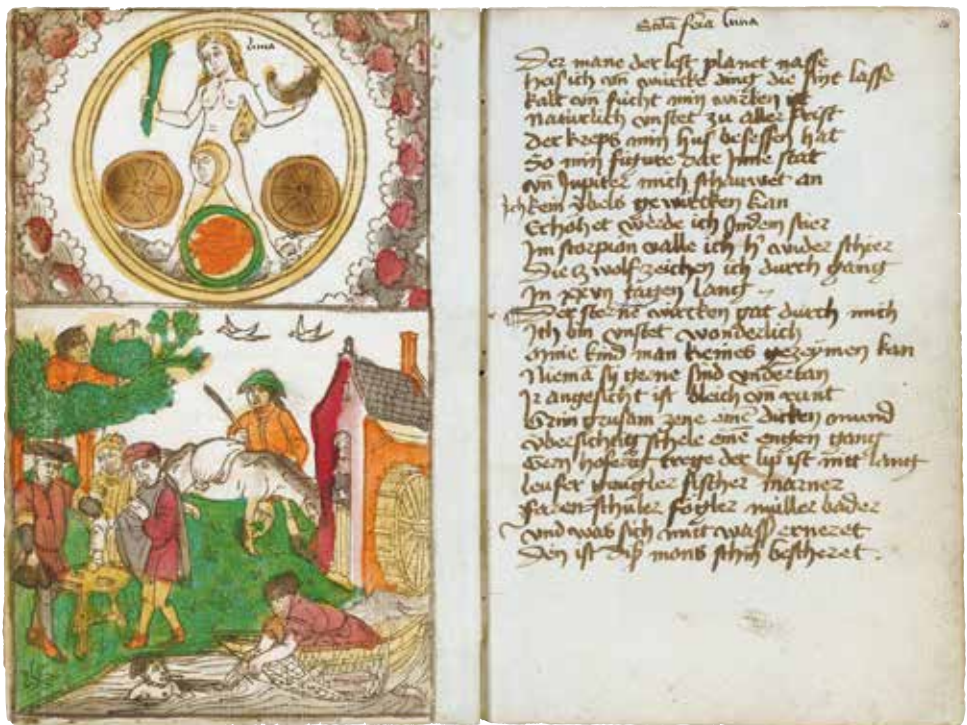 luna
Scda feria luna
Der mane der lest planet nasse
heis ich vn̄ würcke ding die sint lasse
kalt vn̄ fücht min würcken ist
Natürlich vnstet zu aller frist
Der kreps min hus besessen hat
So min figure dar Jnne stat
vn̄ Jupiter mich schauwet an
Ich kein übels gewürcken kan
Erhöhet würde ich Jn dem stier
Im scorpion valle ich wider schier
Die zwolf zeichen ich durch gang
In xxvii tagen lang
Der sterne würcken gat durch mich
Ich bin vnstet wonderlich
mine kind man keines gezeymen kan
Niemā sy gerne sind vndertan
Ir angesicht ist bleich vn̄ runt
Grim grusam zene einē dicken mund
vbersichtig schele einē engen gang
Gern träge der lip ist nitt lang
leufer gougler fischer marner
Faren schuler fogler müller bader
vnd was sich mitt wasser erneret
Den ist diss mons schin bescheret